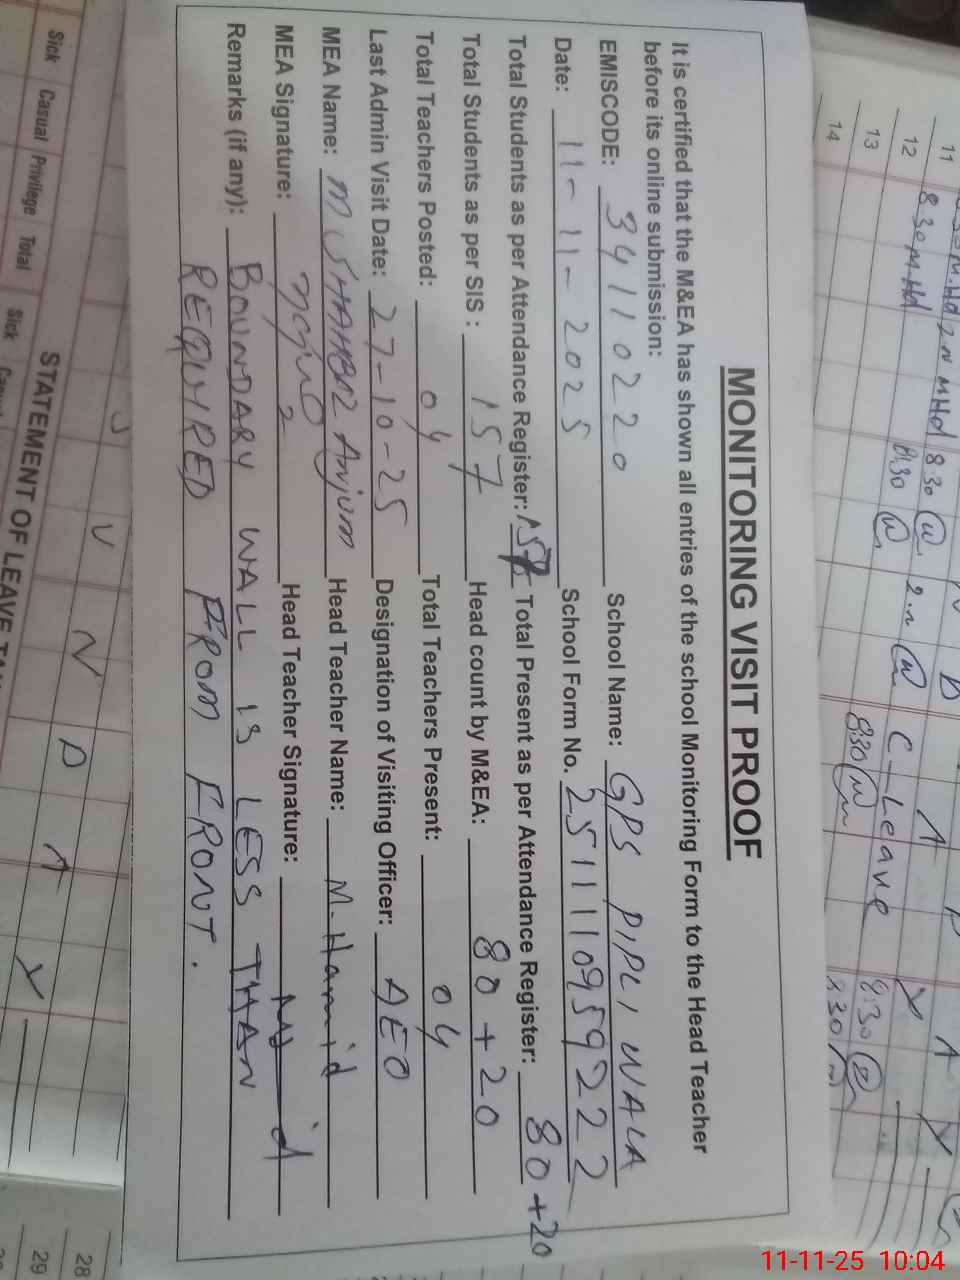 MONITORING VISIT PROOF
It is certified that the M&EA has shown all entries of the school Monitoring Form to the Head Teacher
before its online submission:
EMISCODE: 34110220 School Name: GPS PIPLI WALA
Date: 11-11-2025 School Form No. 2511109592 22
Total Students as per Attendance Register: 157 Total Present as per Attendance Register: 80+20
Total Students as per SIS: 157 Head count by M&EA: 80+20
Total Teachers Posted: 04 Total Teachers Present: 04
Last Admin Visit Date: 27-10-25 Designation of Visiting Officer: AEO
MEA Name: Anjum Head Teacher Name: M-Hamid
MEA Signature: Head Teacher Signature:
Remarks (if any): BOUNDARY WALL IS LESS THAN
REQUIRED FROM FRONT.
11
12
13
14
C-Leave
Sick Casual Privilege Total Sick
STATEMENT OF LEAVE
28
29
11-11-25 10:04